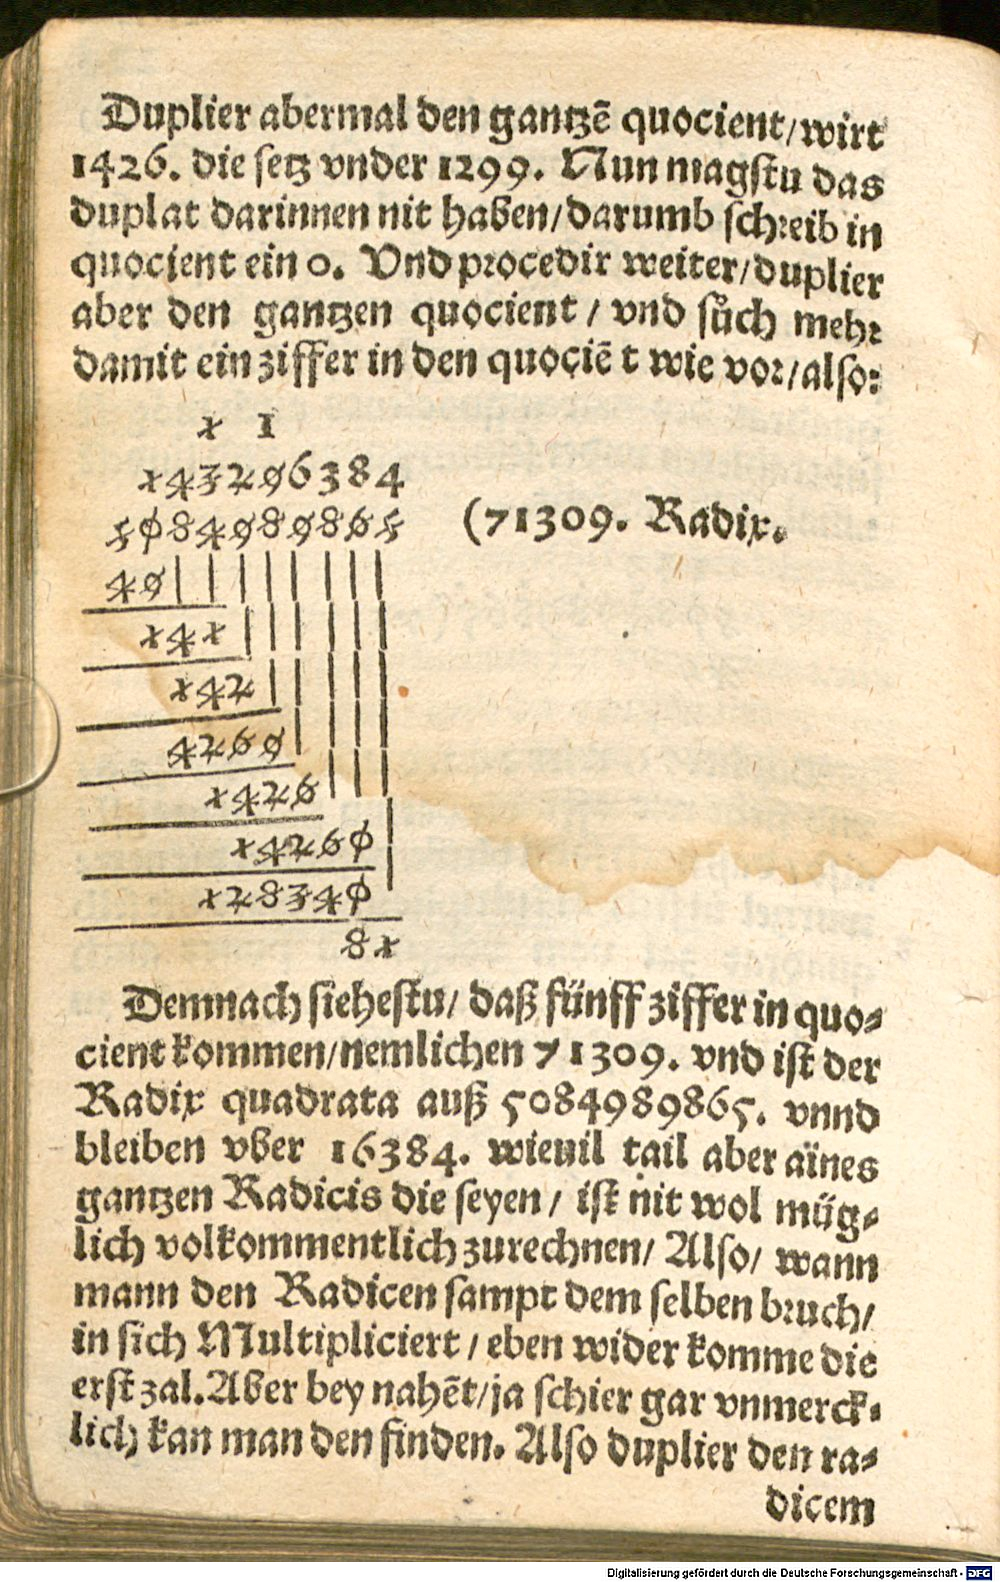 Duplier abermal den gantzē quocient/wirt
1426. die setz vnder 1299. Nun magstu das
duplat darinnen nit haben/darumb schreib in
quocient ein 0. Vnd procedir weiter/duplier
aber den gantzen quocient / vnd sůch mehr
damit ein ziffer in den quociē t wie vor/also:
1 1
143296384
5084989865 (71309. Radix.
49
141
142
4269
1426
14260
128340
81
Demnach siehestu/ daß fünff ziffer in quo-
cient kommen/nemlichen 71309. vnd ist der
Radix quadrata auß 5084989865. vnnd
bleiben vber 16384. wieuil tail aber aines
gantzen Radicis die seyen / ist nit wol müg-
lich volkommentlich zurechnen/ Also/ wann
mann den Radicen sampt dem selben bruch/
in sich Multipliciert / eben wider komme die
erst zal. Aber bey nahēt/ja schier gar vnmerck-
lich kan man den finden. Also duplier den ra-
dicem
Digitalisierung gefördert durch die Deutsche Forschungsgemeinschaft - DFG